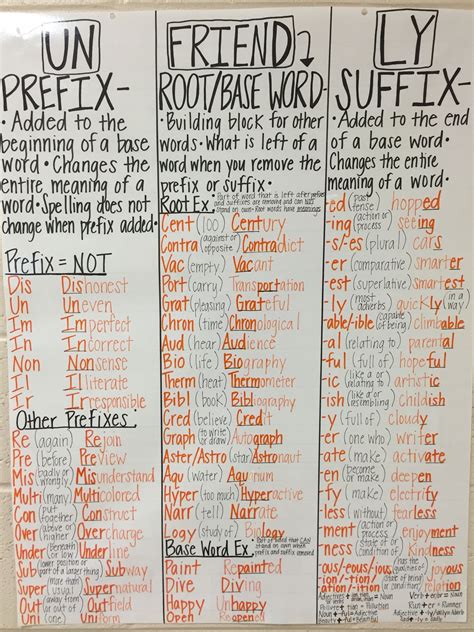 UN
PREFIX-
• Added to the
beginning of a base
word • Changes the
entire meaning of a
word • Spelling does not
change when prefix added.
Prefix = NOT
Dis Dishonest
Un Uneven
Im Imperfect
In Incorrect
Non Nonsense
Il Illiterate
Ir Irresponsible
Other Prefixes:
Re (again) Rejoin
Pre (before) Preview
Mis (badly or wrongly) Misunderstand
Multi (many) Multicolored
Con (put together) Construct
Over (above or higher) Overcharge
Under (beneath or low) Underline
Sub (lower position or part of a larger thing) Subway
Super (more than usual) Supernatural
Out (away) Outfield
Uni (one) Uniform
FRIEND
ROOT/BASE WORD-
• Building block for other
words • What is left of a
word when you remove the
prefix or suffix.
Root Ex. • Part of word that is left after prefixes
and suffixes are removed and can NOT
stand on own • Root words have meanings
Cent (100) Century
Contra (against or opposite) Contradict
Vac (empty) Vacant
Port (carry) Transportation
Grat (pleasing) Grateful
Chron (time) Chronological
Aud (hear) Audience
Bio (life) Biography
Therm (heat) Thermometer
Bibl (book) Bibliography
Cred (believe) Credit
Graph (to write or draw) Autograph
Aster/Astro (star) Astronaut
Aqu (water)
Hyper (too much) Hyperactive
Narr (tell) Narrate
Logy (study of) Biology
Base Word Ex. • Part of word that CAN
stand on own when
prefix and suffix removed
Paint Repainted
Dive Diving
Happy Unhappy
Open Opened
LY
SUFFIX-
• Added to the end
of a base word •
Changes the entire
meaning of a word.
-ed (past tense) hopped
-ing (action or process) seeing
-s/-es (plural) cars
-er (comparative) smarter
-est (superlative) smartest
-ly (most adverbs) quickly (in a way)
-able/ible (capable of being) climbable
-al (relating to) parental
-ful (full of) hopeful
-ic (like a or relating to) artistic
-ish (like a or resembling) childish
-y (full of) cloudy
-er (one who) writer
-ate (make) activate
-en (become or make) deepen
-fy (make) electrify
-less (without) fearless
-ment (action or process) enjoyment
-ness (state or condition of) kindness
-ous/-eous/-ious
-ation/-ition